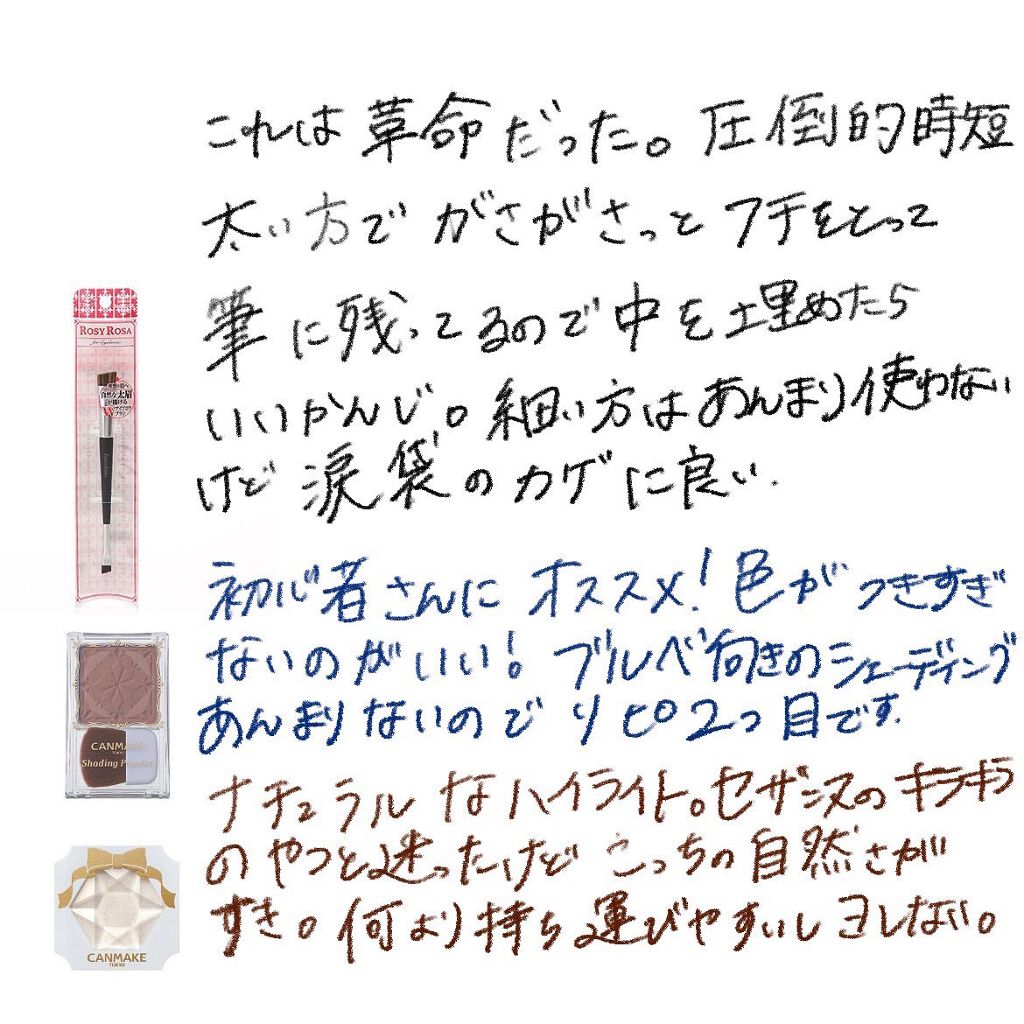 これは革命だった。圧倒的時短
太い方でがさがさっとフチをとって
筆に残ってるので中を埋めたら
いいかんじ。細い方はあんまり使わない
けど涙袋のカゲに良い.
ROSY ROSA
for Eyebrows
自然な太眉
初心者さんにオススメ!色がつきすぎ
ないのがいい!ブルベ向きのシェーディング
あんまりないのでリピ2つ目です.
CANMAKE
TOKYO
Shading Powder
ナチュラルなハイライト。セザンヌのキラキラ
のやつと迷ったけどこっちの自然さが
すき。何より持ち運びやすいしヨレない。
CANMAKE
TOKYO